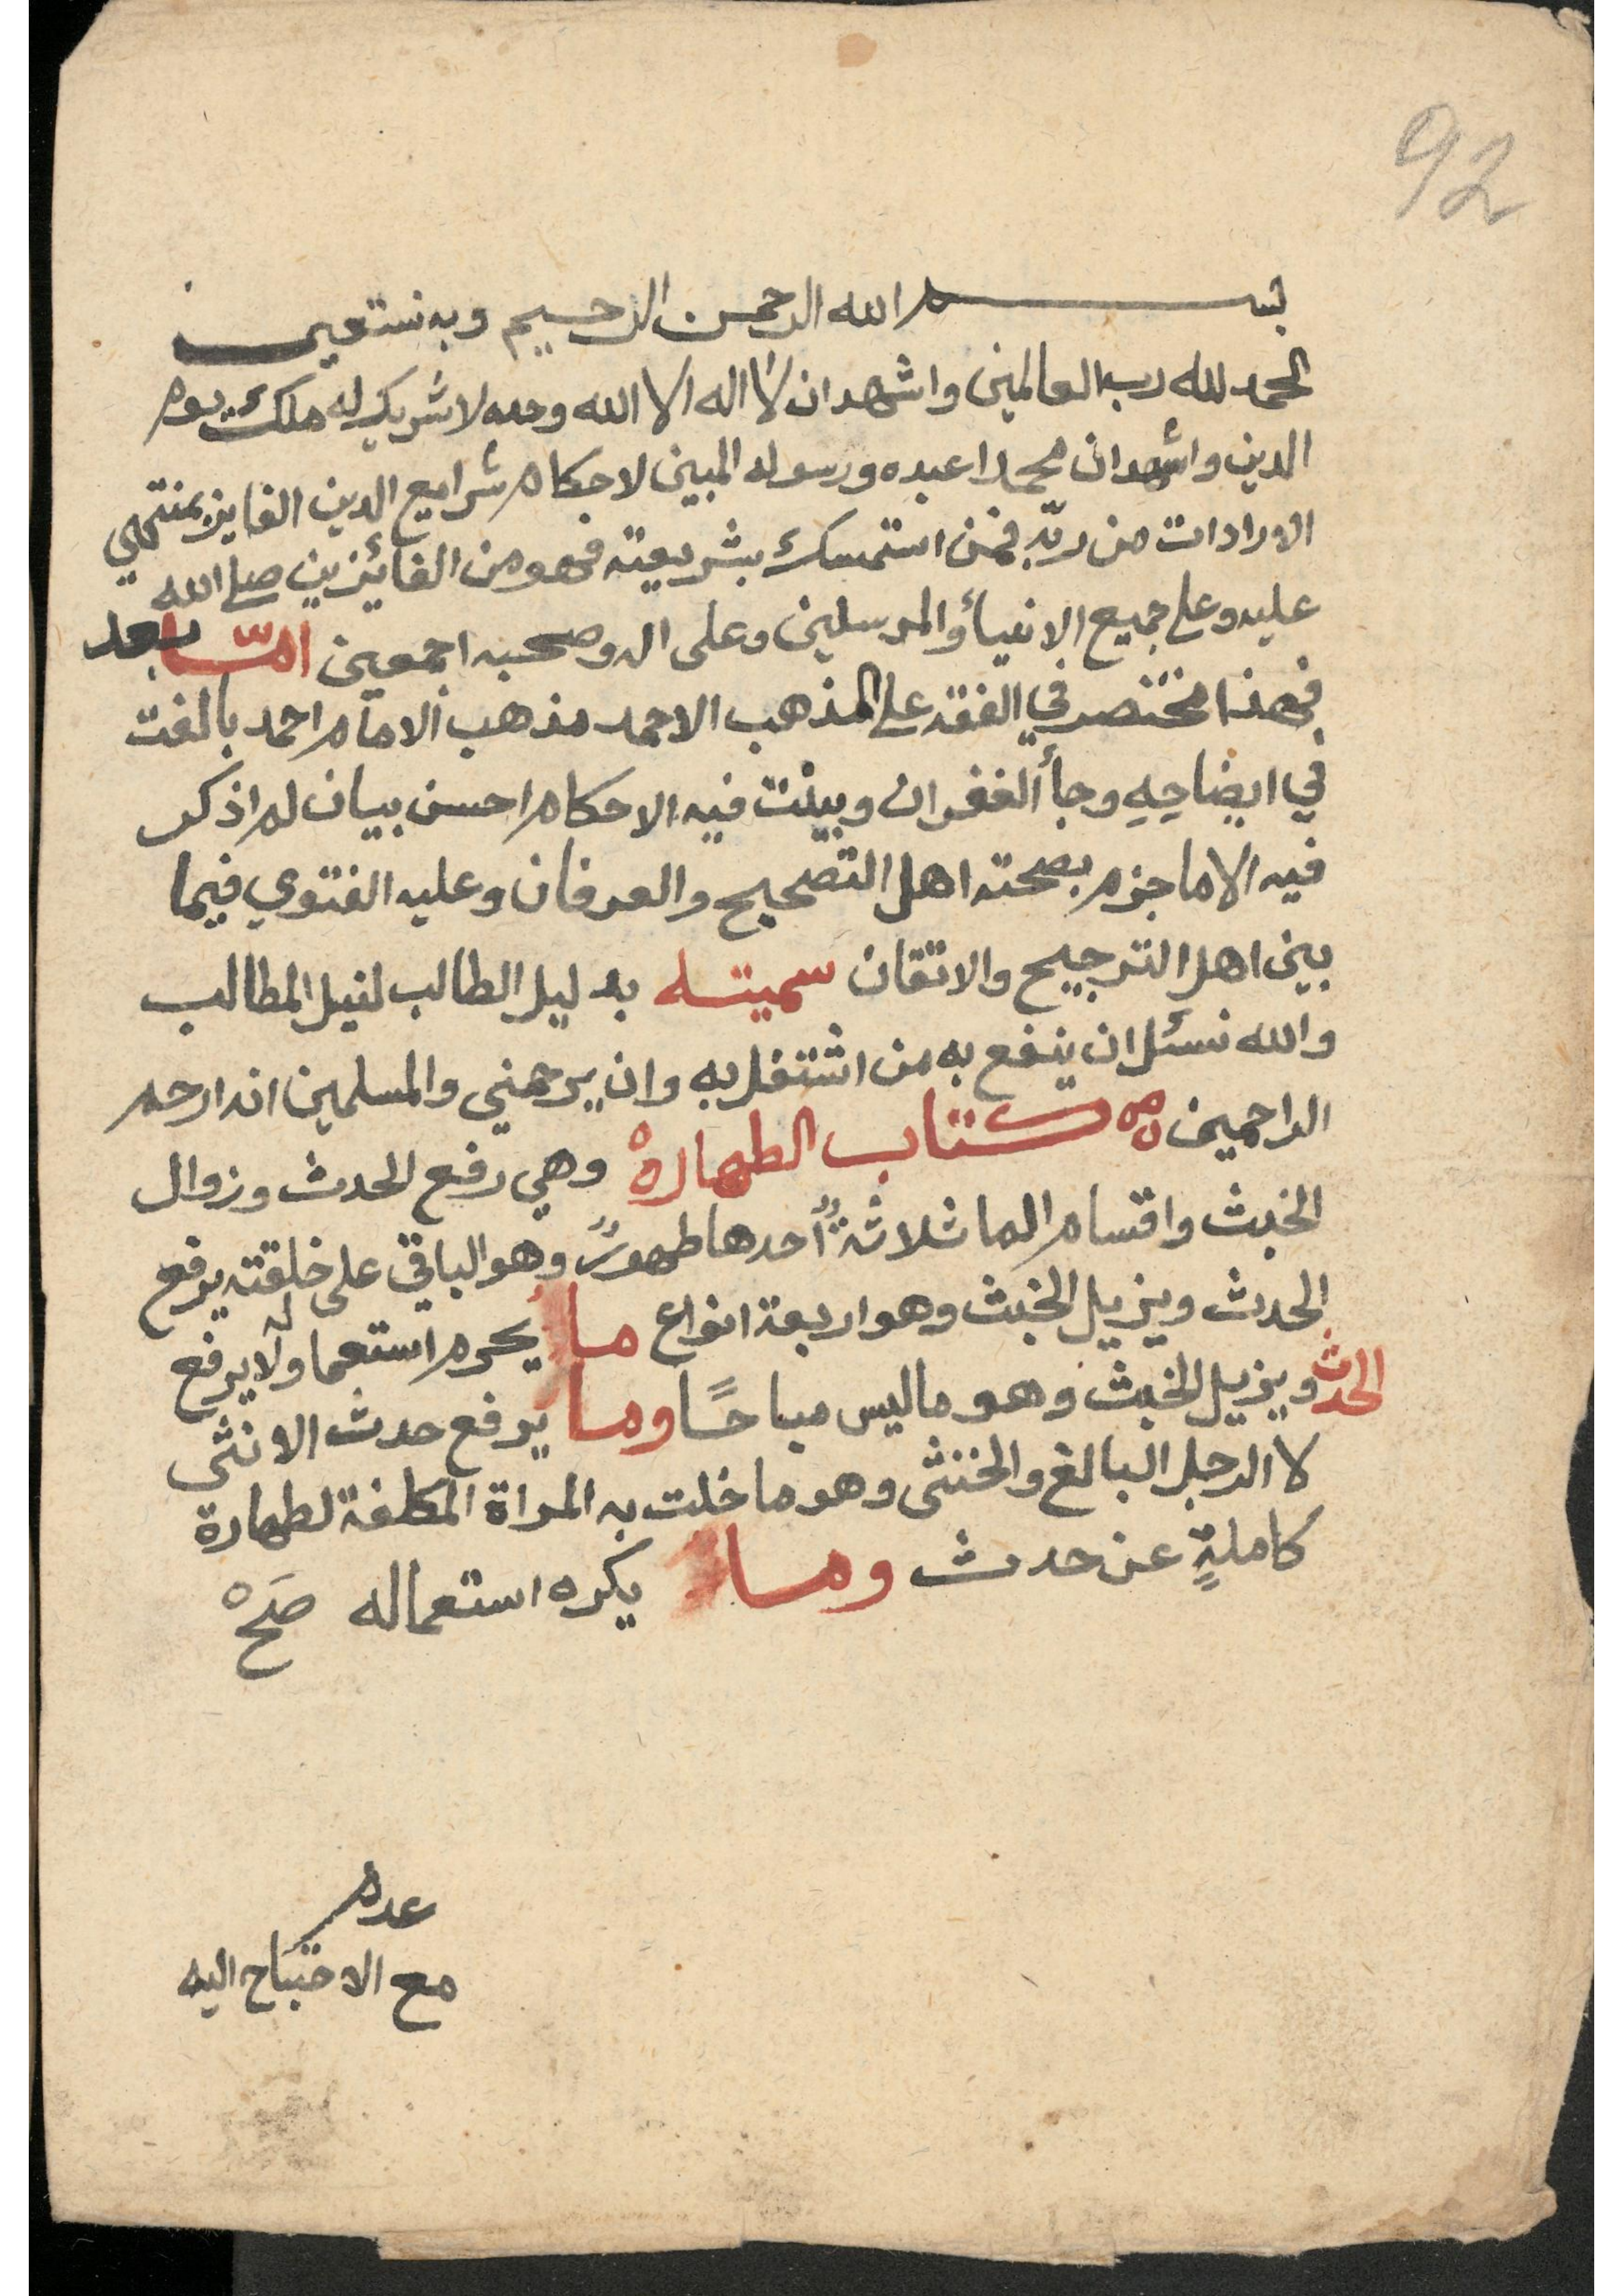 92
بسم الله الرحمن الرحيم وبه نستعين
الحمد لله رب العالمين واشهد ان لا اله الا الله وحده لا شريك له ملك يوم
الدين واشهد ان محمدا عبده ورسوله المبين لاحكام شرايع الدين الفايز بمنتهي
الارادات من ربّه فمن استمسك بشريعته فهو من الفائزين صلى الله
عليه وعلى جميع الانبيأ والمرسلين وعلى اله وصحبه اجمعين امّا بعد
فهذا مختصر في الفقه على المذهب الاحمد مذهب الامام احمد بالغت
في ايضاحِهِ رجأ الغفران وبينت فيه الاحكام احسن بيان لم اذكر
فيه الا ما جزم بصحته اهل التصحيح والعرفان وعليه الفتوي فيما
بين اهل الترجيح والاتقان سميته بدليل الطالب لنيل المطالب
والله نسئل ان ينفع به من اشتغل به وان يرحمني والمسلمين انه ارحم
الراحمين كتاب الطهارة وهي رفع الحدث وزوال
الخبث واقسام الما ثلاثةٌ أحدها طهورٌ وهو الباقي على خلقته يرفع
الحدث ويزيل الخبث وهو اربعة انواع ما يحرم استعماله ولا يرفع
الحدث ويزيل الخبث وهو ما ليس مباحًا وما يرفع حدث الانثى
لا الرجل البالغ والخنثى وهو ما خلت به المراة المكلفة لطهارة
كاملةٍ عن حدث وما يكره استعماله صَحْ
عدم
مع الاحتياج اليه